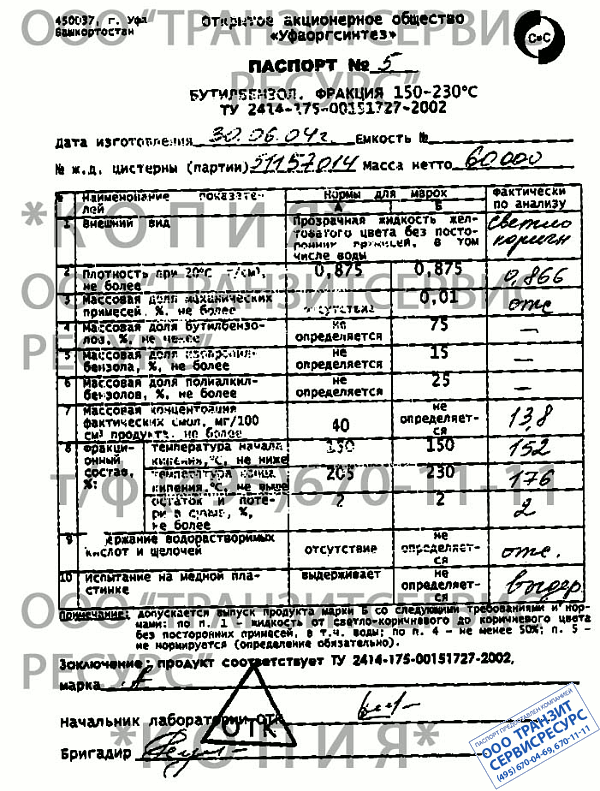 450037, г. Уфа
Башкортостан
Открытое акционерное общество
«Уфаоргсинтез»
С=С
ПАСПОРТ № 5
БУТИЛБЕНЗОЛ. ФРАКЦИЯ 150-230°С
ТУ 2414-175-00151727-2002
Дата изготовления 30.06.04г. Емкость №
№ ж.д. цистерны (партии) 51157014 Масса нетто 60000
№ Наименование показателей Нормы для марок Фактически по анализу
А Б
1 Внешний вид Прозрачная жидкость желтоватого цвета без посторонних примесей, в том числе воды Светло коричн
2 Плотность при 20°С г/см³, не более 0,875 0,875 0,866
3 Массовая доля механических примесей, %, не более отсутствие 0,01 отс
4 Массовая доля бутилбензолов, %, не менее не определяется 75 —
5 Массовая доля изопропилбензола, %, не более не определяется 15 —
6 Массовая доля полиалкилбензолов, %, не более не определяется 25 —
7 Массовая концентрация фактических смол, мг/100 см³ продукта, не более 40 не определяется 13,8
8 Фракционный состав, %: температура начала кипения, °С, не ниже 150 150 152
температура конца кипения, °С, не выше 205 230 176
остаток и потери в сумме, %, не более 2 2 2
9 держание водорастворимых кислот и щелочей отсутствие не определяется отс.
10 Испытание на медной пластинке выдерживает не определяется выдер
Примечание: допускается выпуск продукта марки Б со следующими требованиями и нормами: по п. 1 - жидкость от светло-коричневого до коричневого цвета
без посторонних примесей, в т.ч. воды; по п. 4 - не менее 50%; п. 5 -
не нормируется (определение обязательно).
Заключение: продукт соответствует ТУ 2414-175-00151727-2002,
марка А
Начальник лаборатории ОТК
ОТК
Бригадир
ООО "ТРАНЗИТСЕРВИС
РЕСУРС"
*КОПИЯ*
ООО "ТРАНЗИТСЕРВИС
РЕСУРС"
т/ф (495)670-11-11
ООО "ТРАНЗИТСЕРВИС
РЕСУРС"
*КОПИЯ*
ПАСПОРТ ПРЕДОСТАВЛЕН КОМПАНИЕЙ
ООО ТРАНЗИТ
СЕРВИСРЕСУРС
(495) 670-04-69, 670-11-11